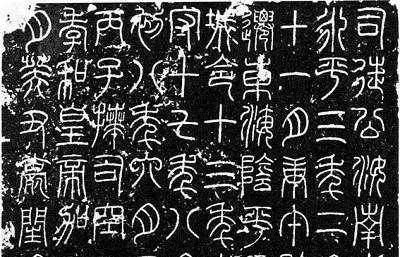 司徒公汝南
永平三年二
十一月庚午
遷東海陰平
城令十三年
守十七年八
初八年六月
丙子拜司空
孝和皇帝加
月癸丑薨閏